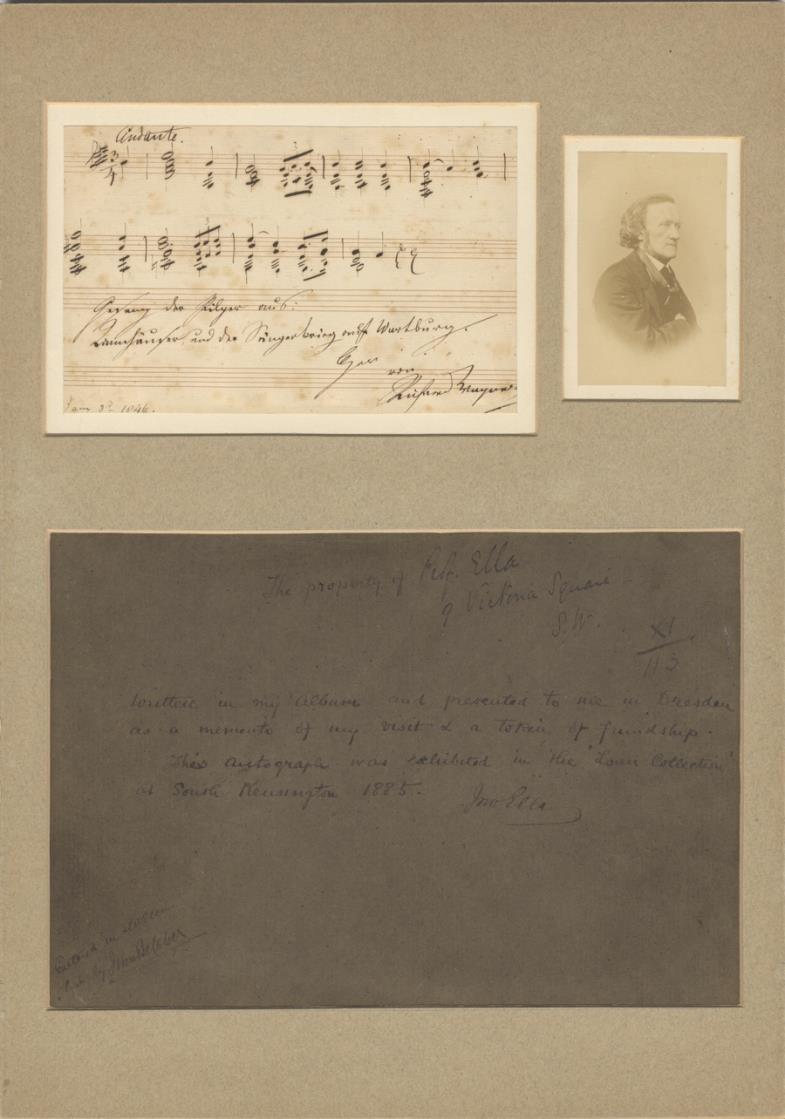 Andante.
3
4
Gesang der Pilger aus:
Tannhäuser, und der Sängerkrieg auf Wartburg.
Oper
von
Richard Wagner
Jan 3d. 1846.
The property of Prof. Ella
9 Victoria Square
S.W.
XI
113
written in my album and presented to me in Dresden
as a memento of my visit & a token of friendship.
This autograph was exhibited in the "Loan Collection"
at South Kensington 1885.
Jno Ella
in
by